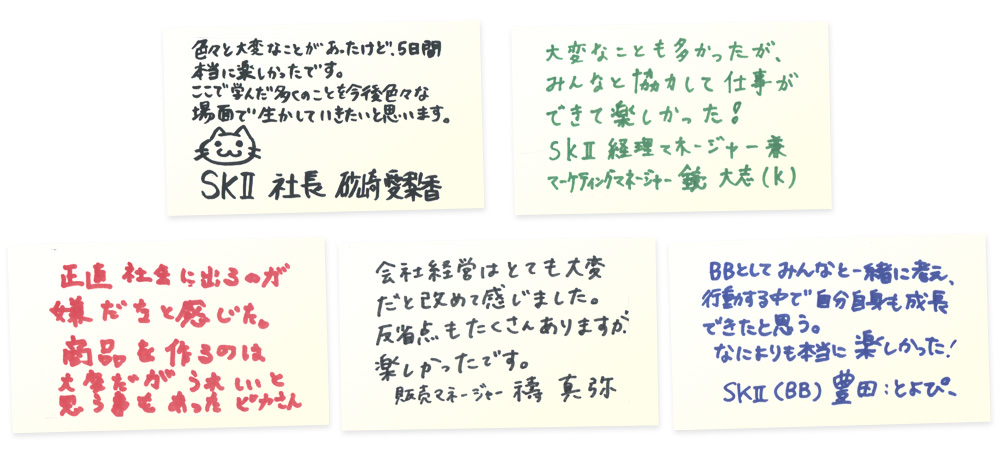 色々と大変なことがあったけど、5日間
本当に楽しかったです。
ここで学んだ多くのことを今後色々な
場面で生かしていきたいと思います。
SKⅡ 社長 砂崎愛梨香
大変なことも多かったが、
みんなと協力して仕事が
できて楽しかった!
SKⅡ 経理マネージャー兼
マーケティングマネージャー 鏡 大志(K)
正直 社会に出るのが
嫌だなと感じた。
商品を作るのは
大変だがうれしいと
思う事もあった ピカさん
会社経営はとても大変
だと改めて感じました。
反省点もたくさんありますが、
楽しかったです。
販売マネージャー 祷 真弥
BBとしてみんなと一緒に考え、
行動する中で自分自身も成長
できたと思う。
なによりも本当に楽しかった!
SKⅡ(BB)豊田:とよぴー